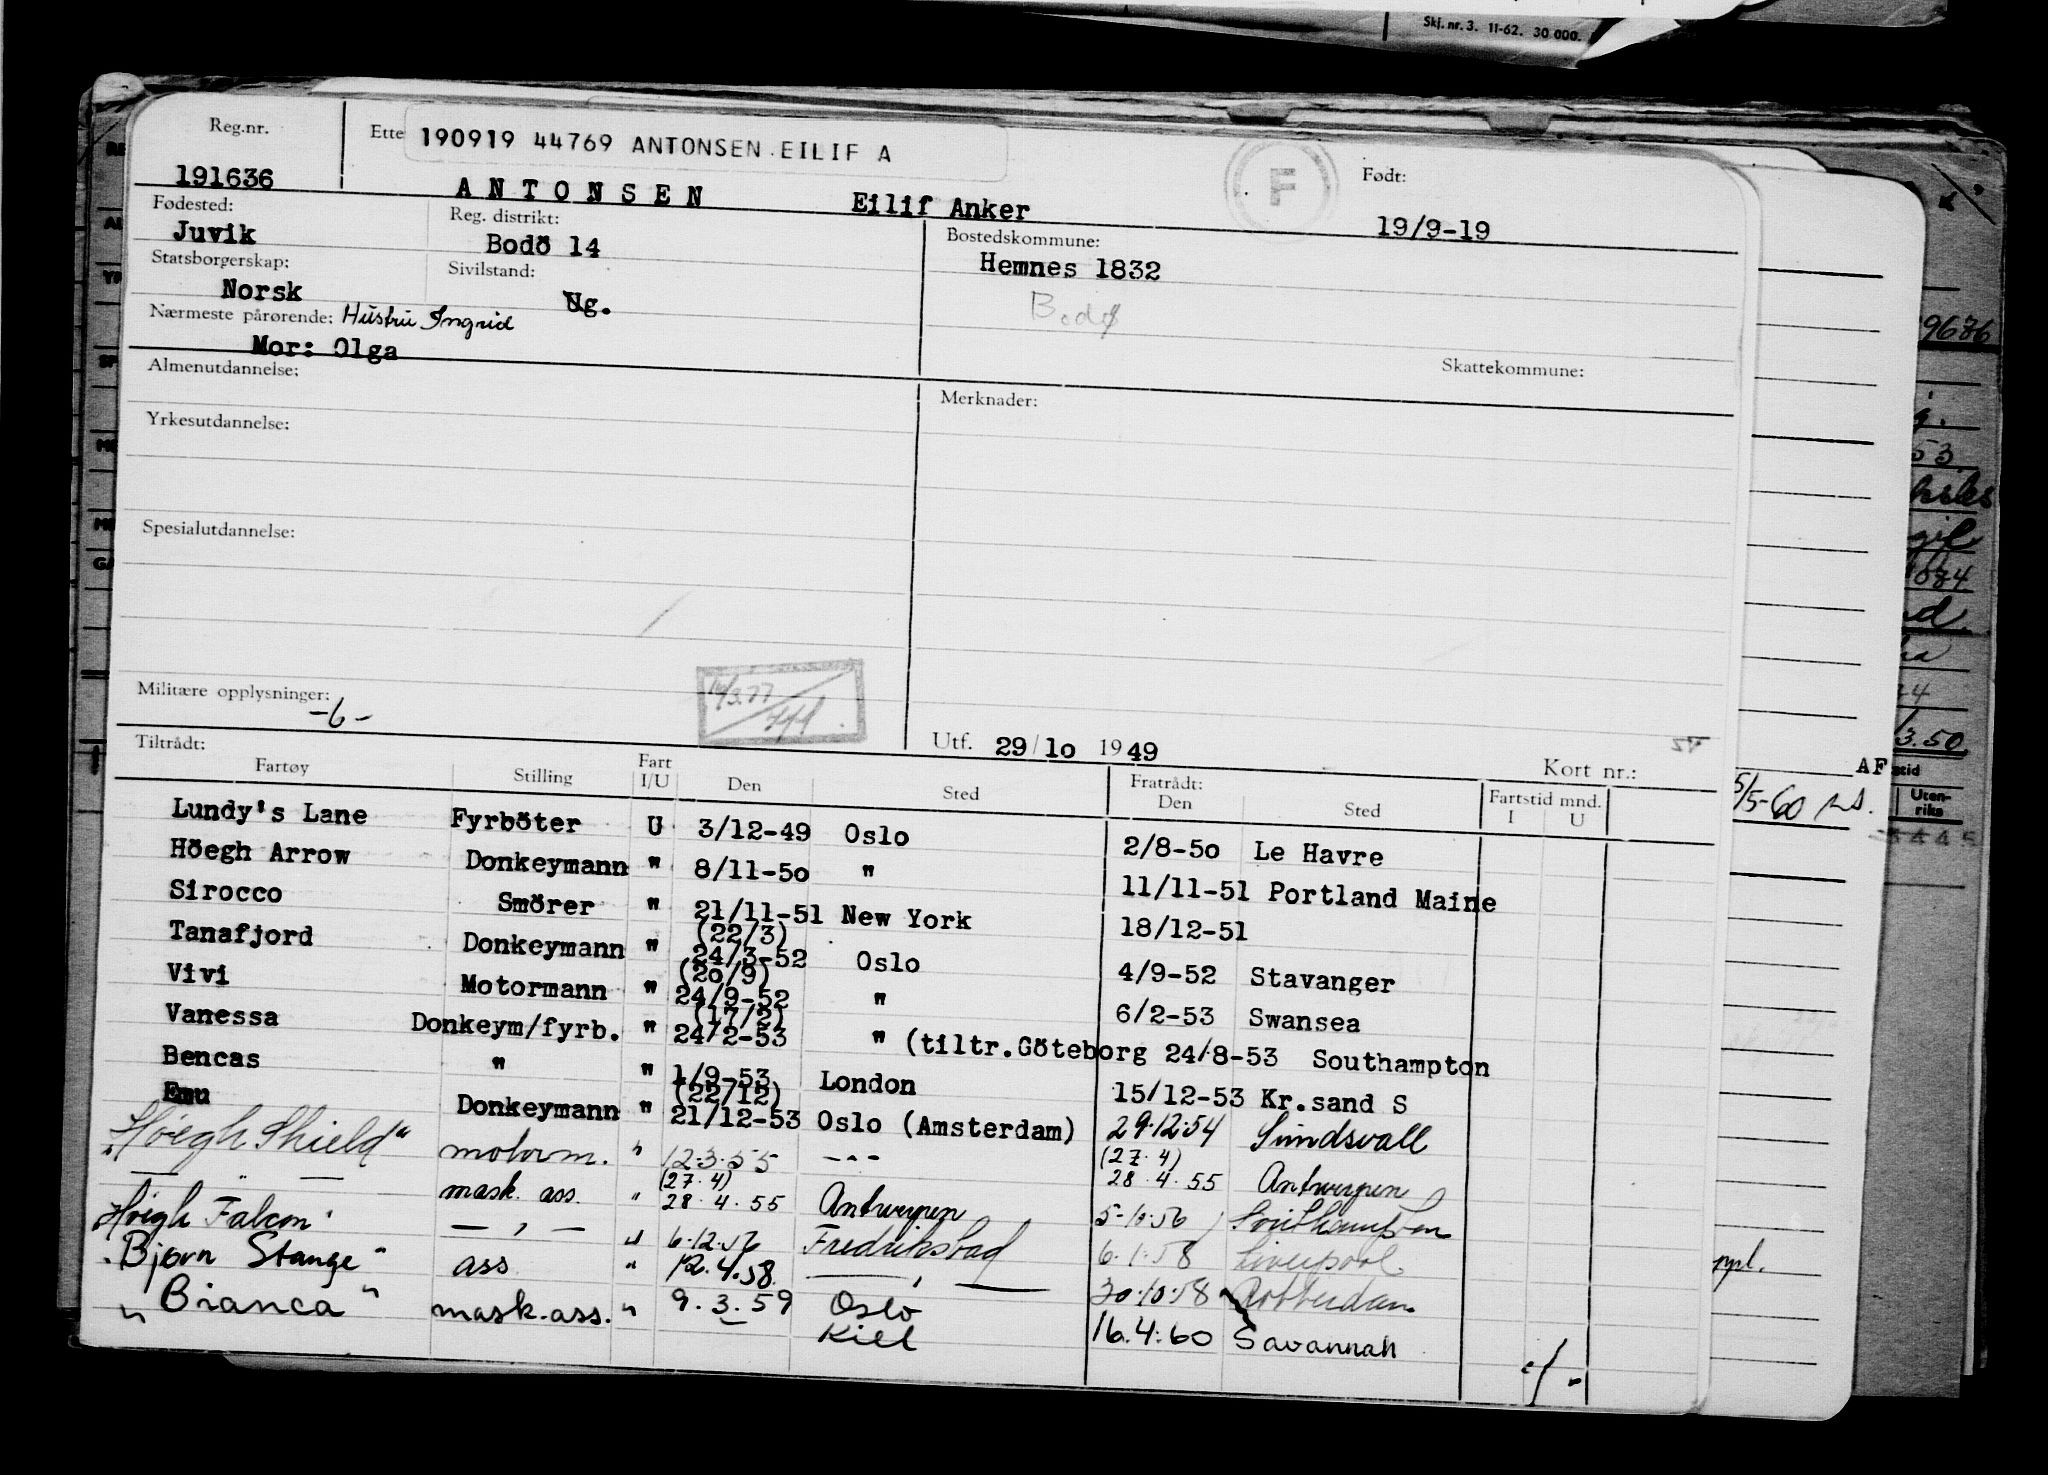 Skj. nr. 3. 11-62. 30 000.
Reg.nr. Ette 190919 44769 ANTONSEN EILIF A F Født:
191636 ANTONSEN Eilif Anker 19/9-19
Fødested: Reg. distrikt: Bostedskommune:
Juvik Bodö 14 Hemnes 1832
Statsborgerskap: Sivilstand: Bodø
Norsk Ug.
Nærmeste pårørende: Hustru Ingrid
Mor: Olga
Skattekommune:
Almenutdannelse: Merknader:
Yrkesutdannelse:
Spesialutdannelse:
Militære opplysninger: -6-
14/3.77
Utf. 29/10 1949 Kort nr.:
Tiltrådt: Fratrådt:
Fartøy Stilling Fart I/U Den Sted Den Sted Fartstid mnd. I U
Lundy's Lane Fyrböter U 3/12-49 Oslo 2/8-50 Le Havre
Höegh Arrow Donkeymann " 8/11-50 " 11/11-51 Portland Maine
Sirocco Smörer " 21/11-51 New York 18/12-51
Tanafjord Donkeymann " (22/3) 24/3-52 Oslo 4/9-52 Stavanger
Vivi Motormann " (20/9) 24/9-52 " 6/2-53 Swansea
Vanessa Donkeym/fyrb. " (17/2) 24/2-53 " (tiltr.Göteborg 24/8-53 Southampton
Bencas " " 1/9-53 London 15/12-53 Kr.sand S
Emu Donkeymann " (22/12) 21/12-53 Oslo (Amsterdam) 29.12.54 Sundsvall
"Høegh Shield" motorm. " 12.3.55 - - - (27.4) 28.4.55 Antwerpen
— " — mask. ass. " (27.4) 28.4.55 Antwerpen 5-10.56 Southampton
Høigh Falcon — , — " 6.12.56 Fredrikstad 6.1.58 Liverpool
"Bjørn Stange" ass " 12.4.58. — , — 30.10.58 Rotterdam
"Bianca" mask.ass. " 9.3.59 Oslo Kiel 16.4.60 Savannah
5/5-60
AF
Uten-
riks
3.50